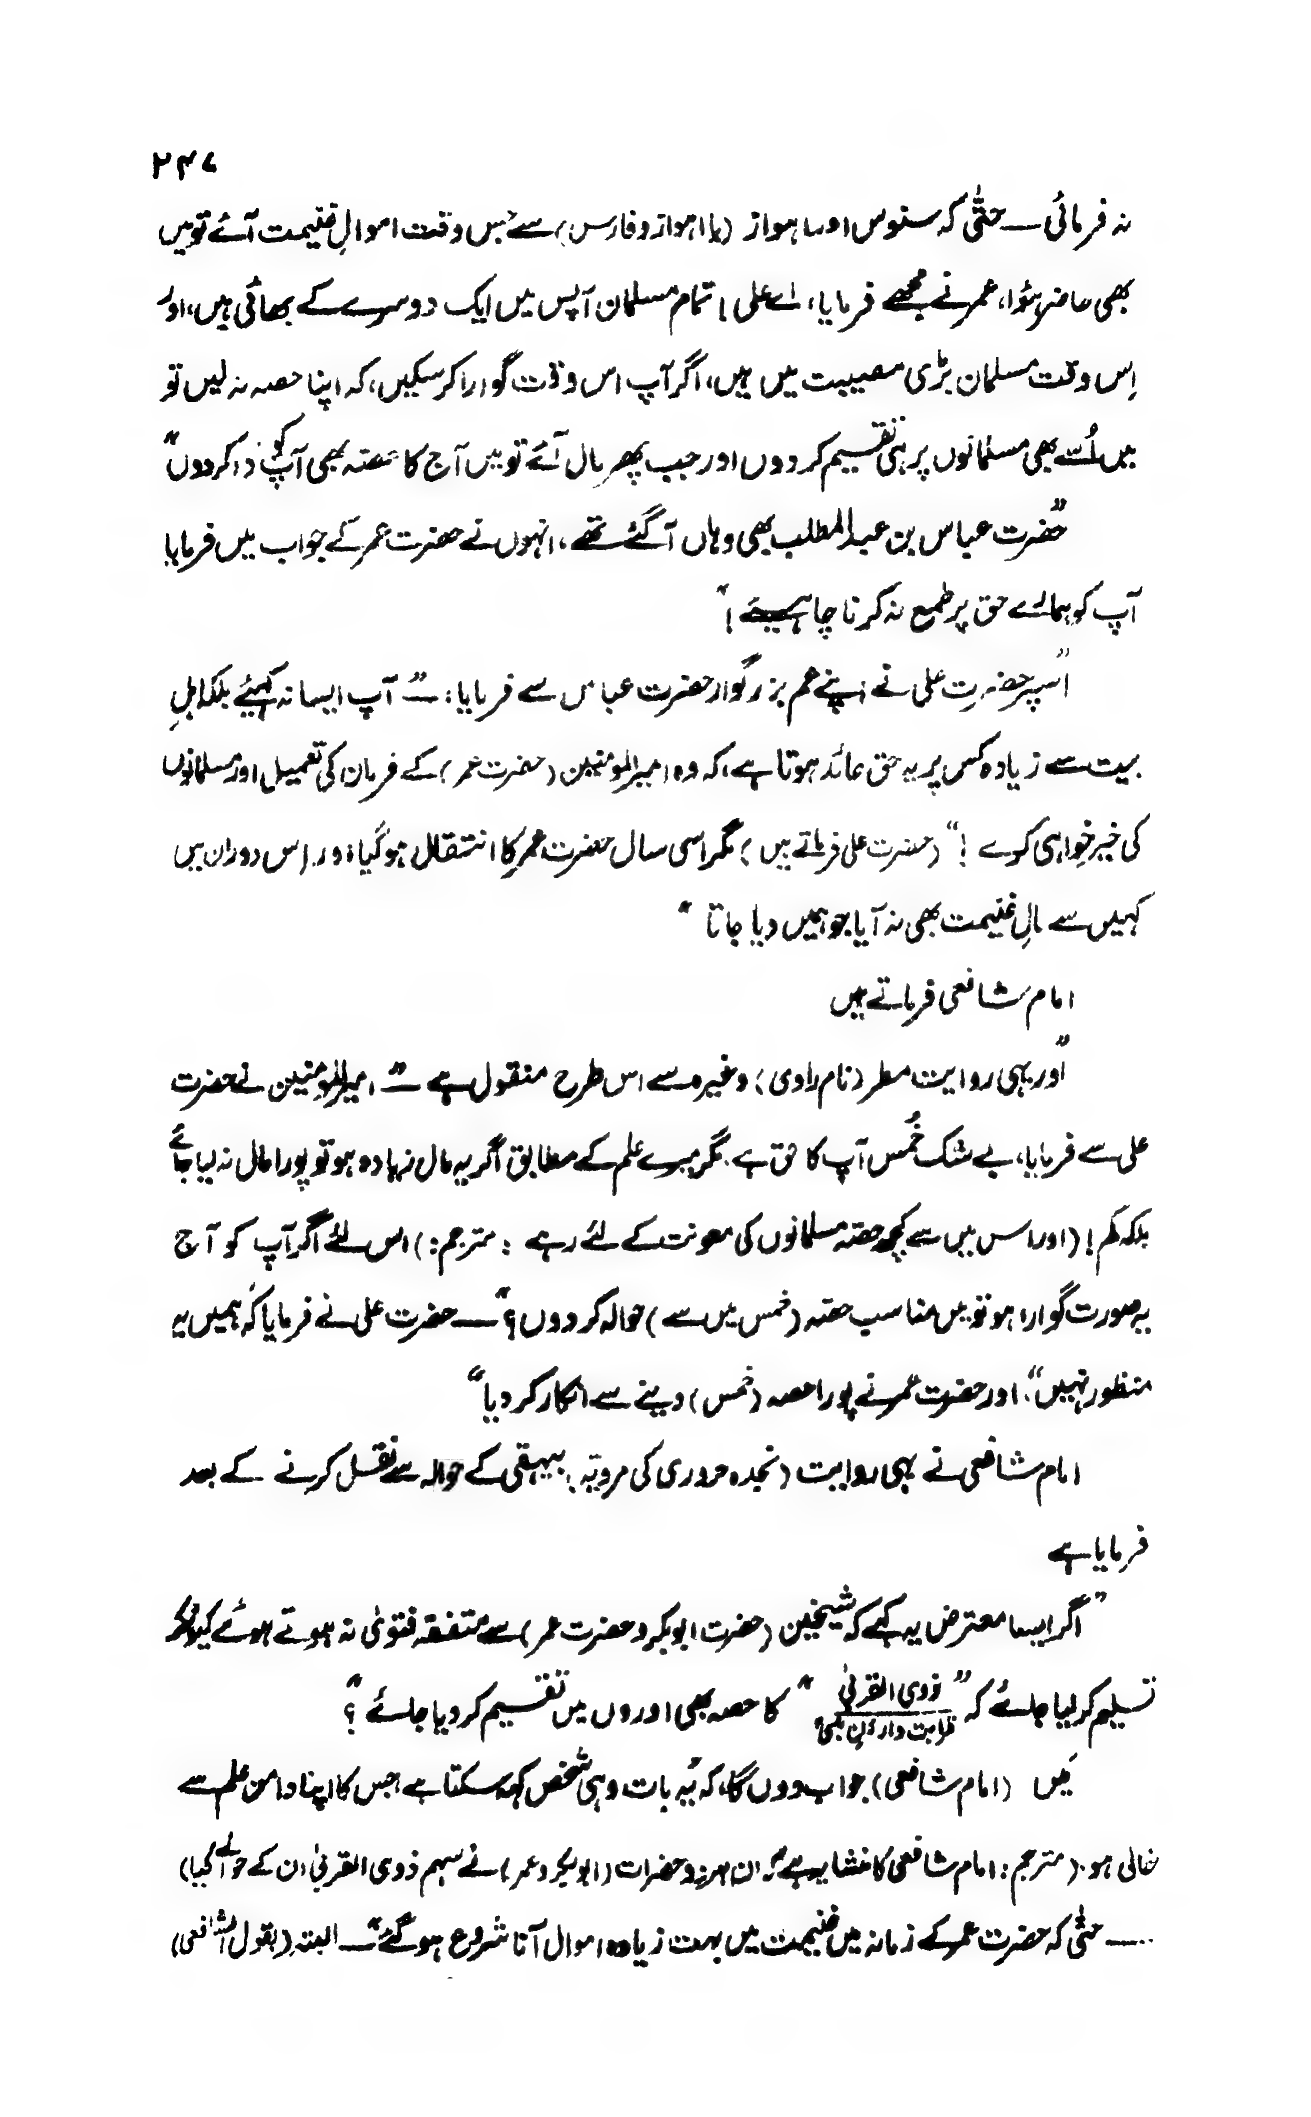 ۲۴۷
نہ فرمائی ــــ حتّٰی کہ سنوس اور اہواز (یا اہواز و فارس) سے جس وقت اموالِ غنیمت آئے تو میں
بھی حاضر ہؤا، عمر نے مجھے فرمایا، اے علی! تمام مسلمان آپس میں ایک دوسرے کے بھائی ہیں، اور
اِس وقت مسلمان بڑی مصیبت میں ہیں، اگر آپ اس وقت گوارا کر سکیں، کہ اپنا حصہ نہ لیں تو
میں اُسے بھی مسلمانوں پر ہی تقسیم کر دوں اور جب پھر مال آئے تو میں آج کا حصّہ بھی آپ کو ادا کر دوں"
"حضرت عباس بن عبدالمطلب بھی وہاں آ گئے تھے، انہوں نے حضرت عمر کے جواب میں فرمایا
آپ کو ہمارے حق پر طمع نہ کرنا چاہیئے!"
"اسپر حضرت علی نے اپنے عم بزرگوار حضرت عباس سے فرمایا: ــ" آپ ایسا نہ کہیئے بلکہ اہلِ
بیت سے زیادہ کس پر یہ حق عائد ہوتا ہے، کہ وہ امیرالمومنین (حضرت عمر) کے فرمان کی تعمیل اور مسلمانوں
کی خیر خواہی کرے!" (حضرت علی فرماتے ہیں) مگر اسی سال حضرت عمر کا انتقال ہو گیا اور اِس دوران میں
کہیں سے مالِ غنیمت بھی نہ آیا جو ہمیں دیا جاتا"
امام شافعی فرماتے ہیں
"اور یہی روایت مطر (نام راوی) وغیرہ سے اس طرح منقول ہے ــ" امیرالمومنین نے حضرت
علی سے فرمایا، بے شک خُمس آپ کا حق ہے. مگر میرے علم کے مطابق اگر یہ مال زیادہ ہو تو پورا مال نہ لیا جائے
بلکہ کم! (اور اس میں سے کچھ حصّہ مسلمانوں کی معونت کے لئے رہے : مترجم:) اس لئے اگر آپ کو آج
یہ صورت گوارا ہو تو میں مناسب حصّہ (خمس میں سے) حوالہ کر دوں؟" ــــ حضرت علی نے فرمایا کہ ہمیں یہ
منظور نہیں". اور حضرت عمر نے پورا حصہ (خمس) دینے سے انکار کر دیا"
امام شافعی نے یہی روایت (نجدہ حروری کی مرویّہ) بیہقی کے حوالہ سے نقل کرنے کے بعد
فرمایا ہے
"اگر ایسا معترض یہ کہے کہ شیخین (حضرت ابوبکر و حضرت عمر) سے متفقہ فتویٰ نہ ہوتے ہوئے کیونکر
تسلیم کر لیا جائے کہ "ذوی القربیٰ" کا حصہ بھی اوروں میں تقسیم کر دیا جائے؟"
قرابت دارانِ نبی؟
میں (امام شافعی) جواب دوں گا، کہ یہ بات وہی شخص کہہ سکتا ہے، جس کا اپنا دامن علم سے
خالی ہو. (مترجم: امام شافعی کا منشا یہ ہے کہ ان ہر دو حضرات (ابوبکر و عمر) نے سہم ذوی القربیٰ ان کے حوالے کیا)
ــــ حتّٰی کہ حضرت عمر کے زمانہ میں غنیمت میں بہت زیادہ اموال آنا شروع ہو گئے" ــــ البتہ (بقول الشافعی)